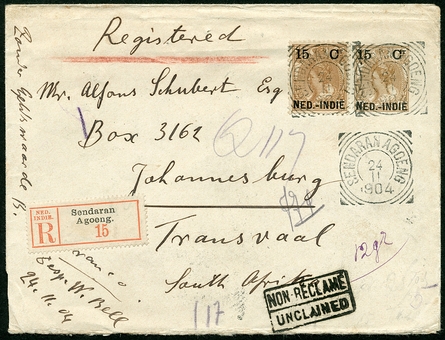 Registered
15 Ct
NED.-INDIË
15 Ct
NED.-INDIË
Mr. Alfons Schubert Esq
Box 3162
Johannesburg
Transvaal
South Afrika
SENDARAN AGOENG
24
11
1904
Q 117
NED.
INDIË.
R
Sendaran
Agoeng.
15
W. Bell
24.11.04
117
NON-RÉCLAMÉ
UNCLAIMED